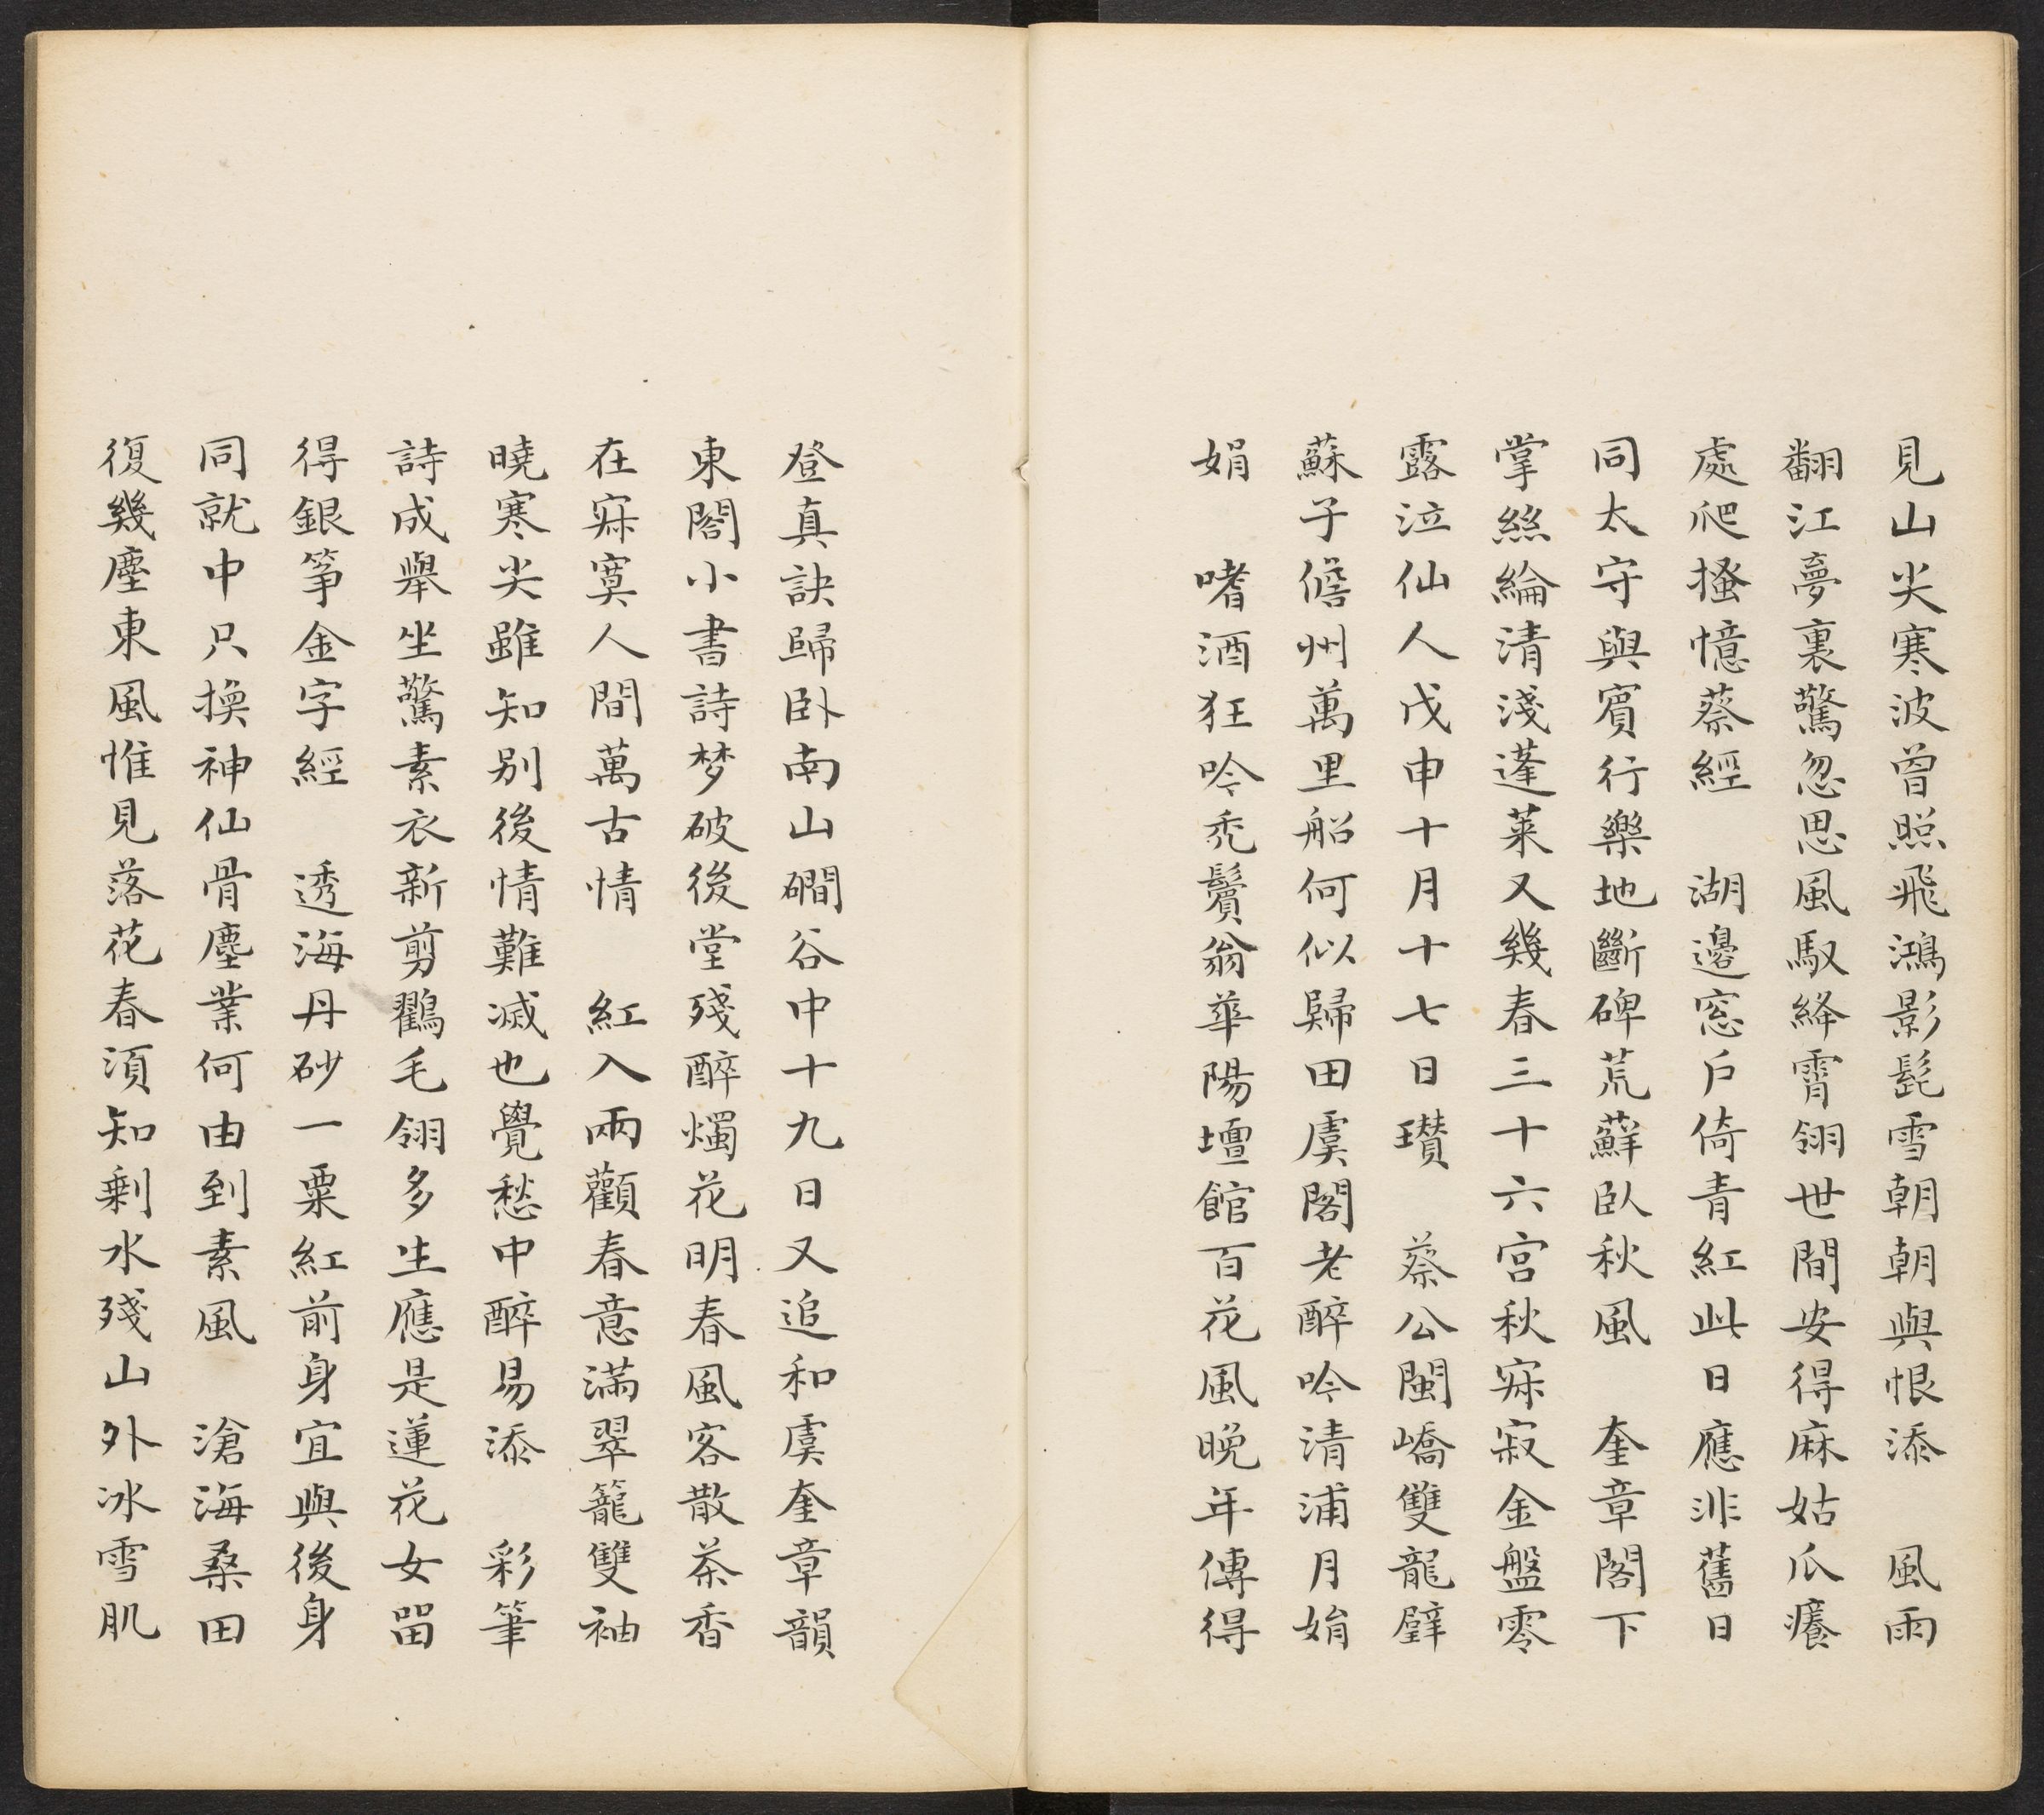 見山尖寒波曾照飛鴻影髭雪朝朝與恨添　風雨
翻江夢裏驚忽思風馭絳霄翎世間安得麻姑爪癢
處爬搔憶蔡經　湖邊窓戶倚青紅此日應非舊日
同太守與賓行樂地斷碑荒蘚臥秋風　奎章閣下
掌絲綸清淺蓬萊又幾春三十六宮秋寂寂金盤零
露泣仙人戊申十月十七日瓚　蔡公閩嶠雙龍璧
蘇子儋州萬里船何似歸田虞閣老醉吟清浦月娟
娟　嗜酒狂吟禿鬢翁華陽壇館百花風晚年傳得
登真訣歸臥南山磵谷中十九日又追和虞奎章韻
東閣小書詩梦破後堂殘醉燭花明春風客散茶香
在寂寞人間萬古情　紅入兩顴春意滿翠籠雙袖
曉寒尖雖知別後情難減也覺愁中醉易添　彩筆
詩成舉坐驚素衣新剪鸛毛翎多生應是蓮花女畱
得銀箏金字經　透海丹砂一粟紅前身宜與後身
同就中只換神仙骨塵業何由到素風　滄海桑田
復幾塵東風惟見落花春須知剩水殘山外冰雪肌